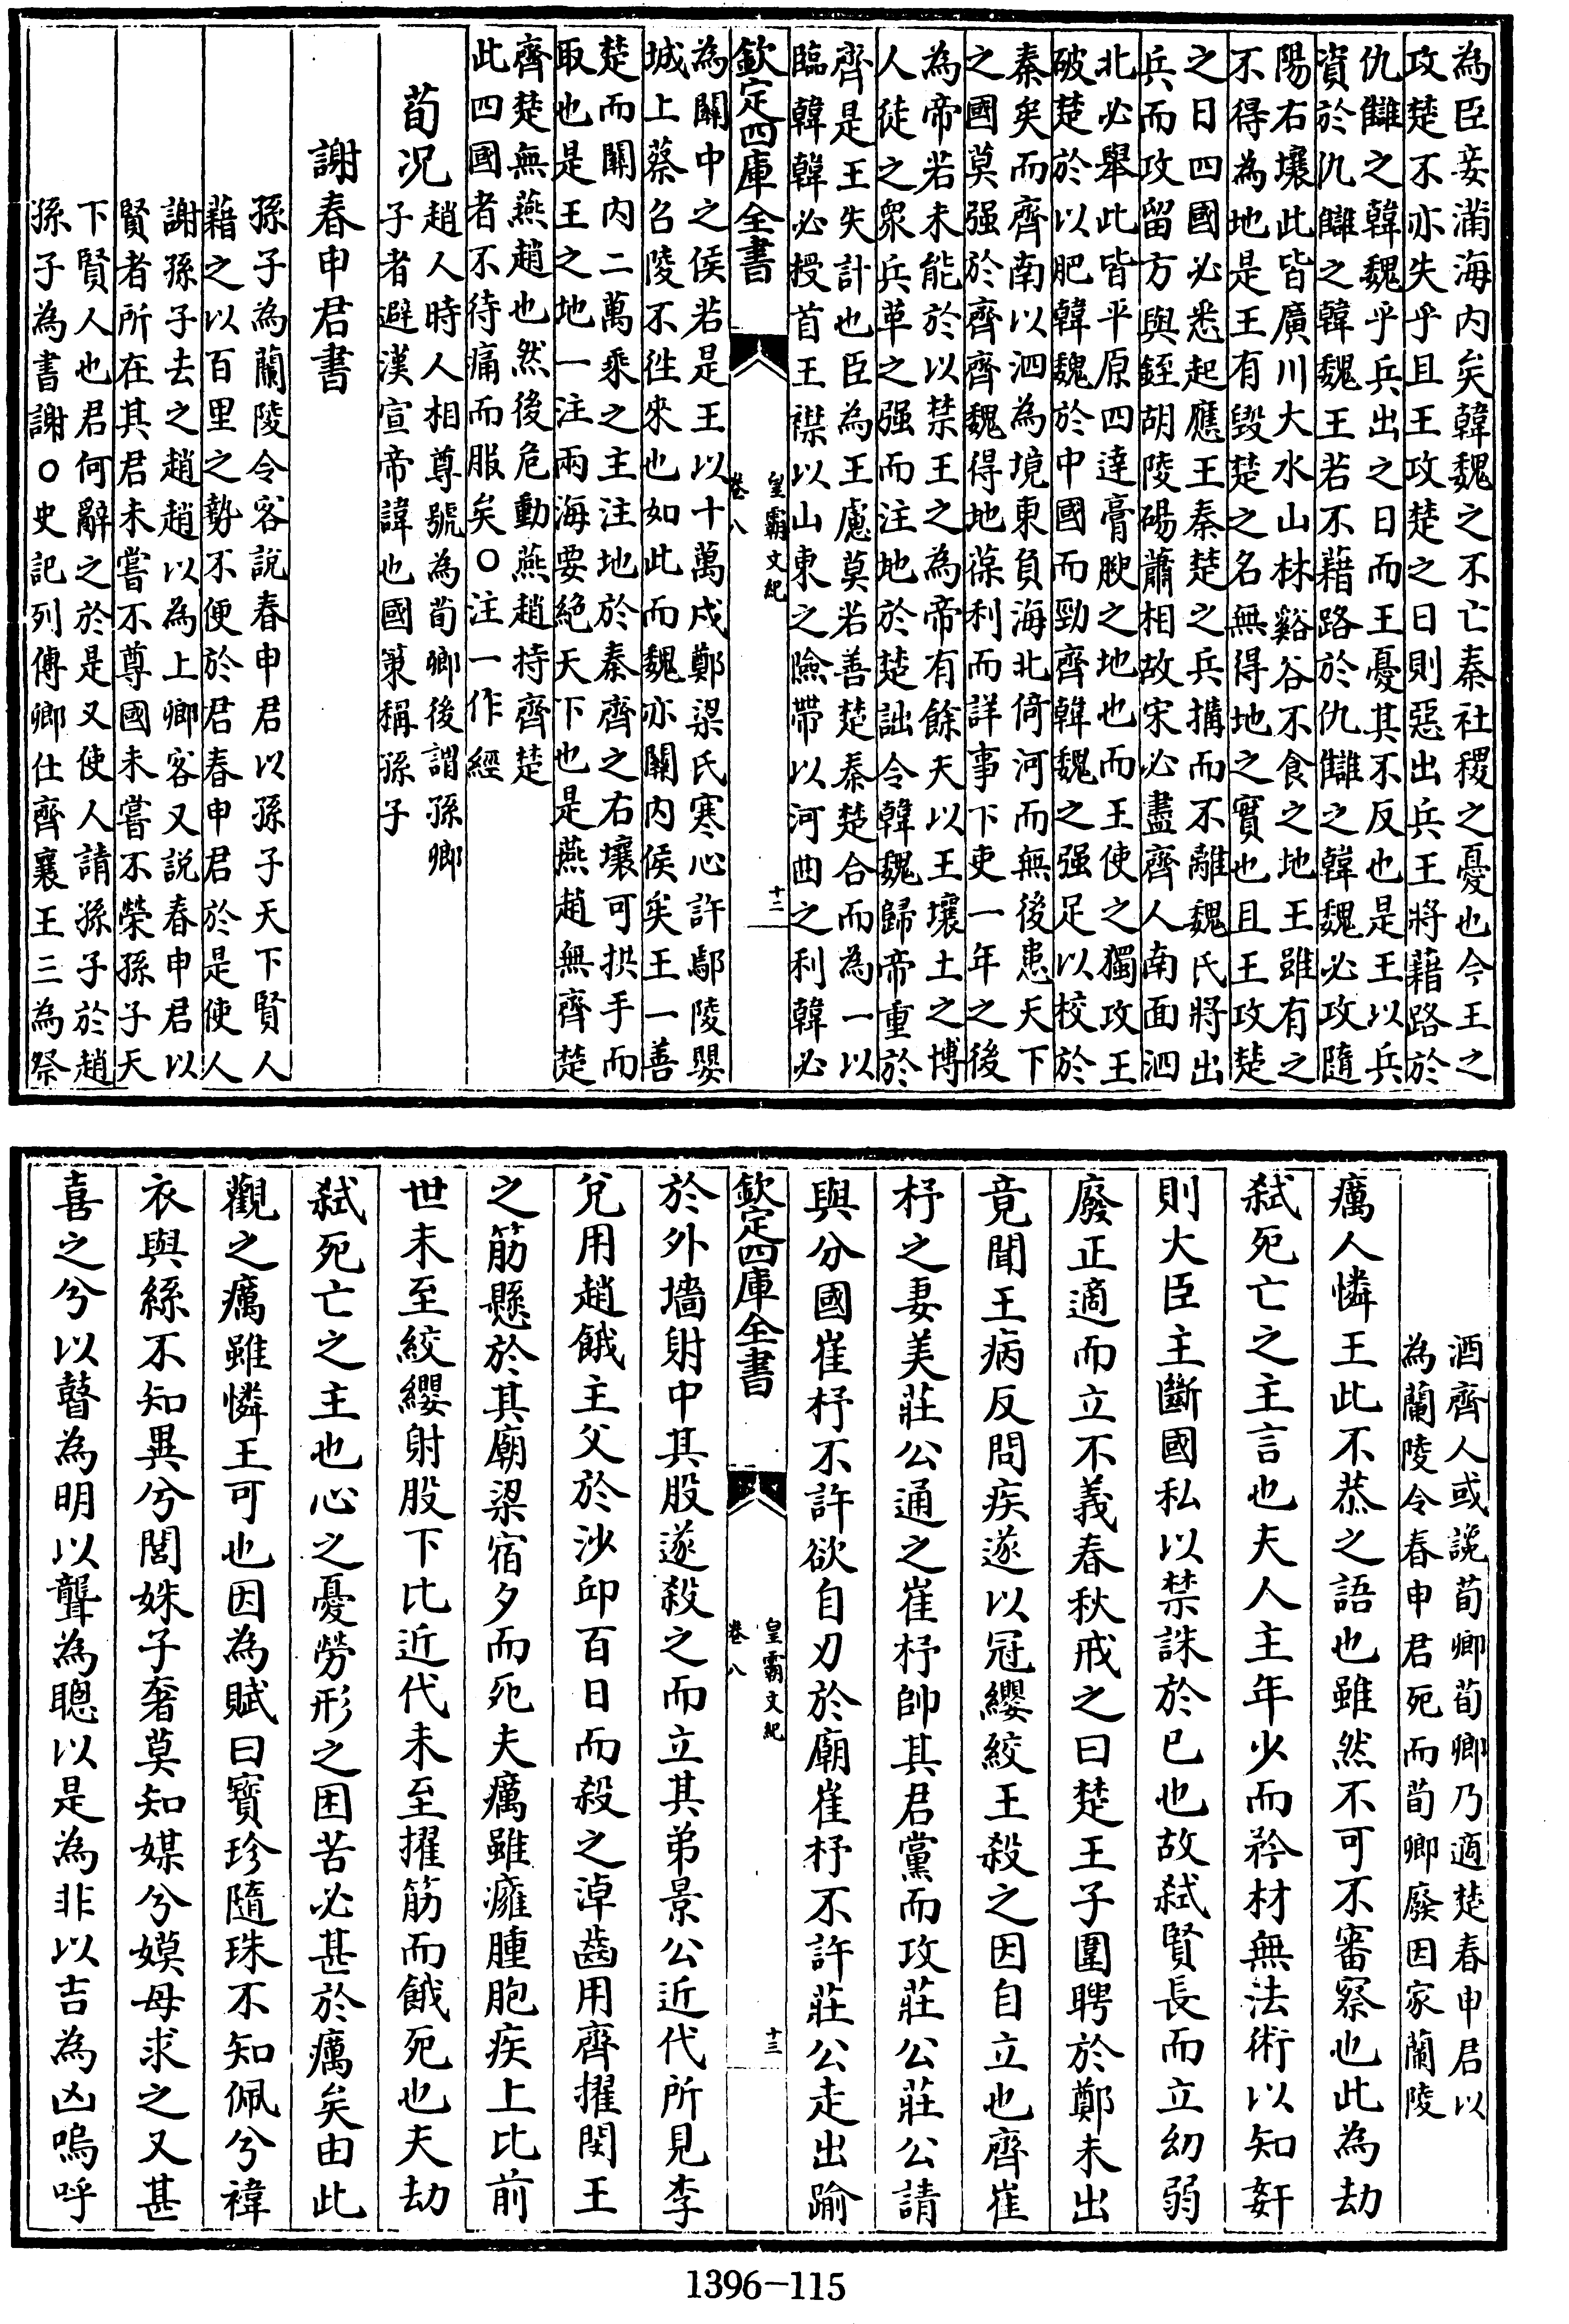 為臣妾滿海内矣韓魏之不亡秦社稷之憂也今王之
攻楚不亦失乎且王攻楚之日則惡出兵王將藉路於
仇讎之韓魏乎兵出之日而王憂其不反也是王以兵
資於仇讎之韓魏王若不藉路於仇讎之韓魏必攻隨
陽右壤此皆廣川大水山林谿谷不食之地王雖有之
不得為地是王有毁楚之名無得地之實也且王攻楚
之日四國必悉起應王秦楚之兵搆而不離魏氏將出
兵而攻留方與銍胡陵碭蕭相故宋必盡齊人南面泗
北必舉此皆平原四達膏腴之地也而王使之獨攻王
破楚於以肥韓魏於中國而勁齊韓魏之强足以校於
秦矣而齊南以泗為境東負海北倚河而無後患天下
之國莫强於齊齊魏得地葆利而詳事下吏一年之後
為帝若未能於以禁王之為帝有餘夫以王壤土之博
人徒之衆兵革之强而注地於楚詘令韓魏歸帝重於
齊是王失計也臣為王慮莫若善楚秦楚合而為一以
臨韓韓必授首王襟以山東之險帶以河曲之利韓必
欽定四庫全書
皇霸文紀
卷八
十二
為關中之侯若是王以十萬戍鄭梁氏寒心許鄢陵嬰
城上蔡召陵不徃來也如此而魏亦關内侯矣王一善
楚而關内二萬乘之主注地於秦齊之右壤可拱手而
取也是王之地一注兩海要絶天下也是燕趙無齊楚
齊楚無燕趙也然後危動燕趙持齊楚
此四國者不待痛而服矣○注一作經
荀况
趙人時人相尊號為荀卿後謂孫卿
子者避漢宣帝諱也國策稱孫子
謝春申君書
孫子為蘭陵令客説春申君以孫子天下賢人
藉之以百里之勢不便於君春申君於是使人
謝孫子去之趙趙以為上卿客又説春申君以
賢者所在其君未嘗不尊國未嘗不榮孫子天
下賢人也君何辭之於是又使人請孫子於趙
孫子為書謝○史記列傳卿仕齊襄王三為祭
酒齊人或讒荀卿荀卿乃適楚春申君以
為蘭陵令春申君死而荀卿廢因家蘭陵
癘人憐王此不恭之語也雖然不可不審察也此為劫
弑死亡之主言也夫人主年少而矜材無法術以知奸
則大臣主斷國私以禁誅於已也故弑賢長而立幼弱
廢正適而立不義春秋戒之曰楚王子圍聘於鄭未出
竟聞王病反問疾遂以冠纓絞王殺之因自立也齊崔
杼之妻美莊公通之崔杼帥其君黨而攻莊公莊公請
與分國崔杼不許欲自刃於廟崔杼不許莊公走出踰
欽定四庫全書
皇霸文紀
卷八
十三
於外墻射中其股遂殺之而立其弟景公近代所見李
兌用趙餓主父於沙邱百日而殺之淖齒用齊擢閔王
之筋懸於其廟梁宿夕而死夫癘雖癰腫胞疾上比前
世未至絞纓射股下比近代未至擢筋而餓死也夫劫
弑死亡之主也心之憂勞形之困苦必甚於癘矣由此
觀之癘雖憐王可也因為賦曰寳珍隨珠不知佩兮褘
衣與絲不知異兮閭姝子奢莫知媒兮嫫母求之又甚
喜之兮以瞽為明以聾為聰以是為非以吉為凶嗚呼
1396-115